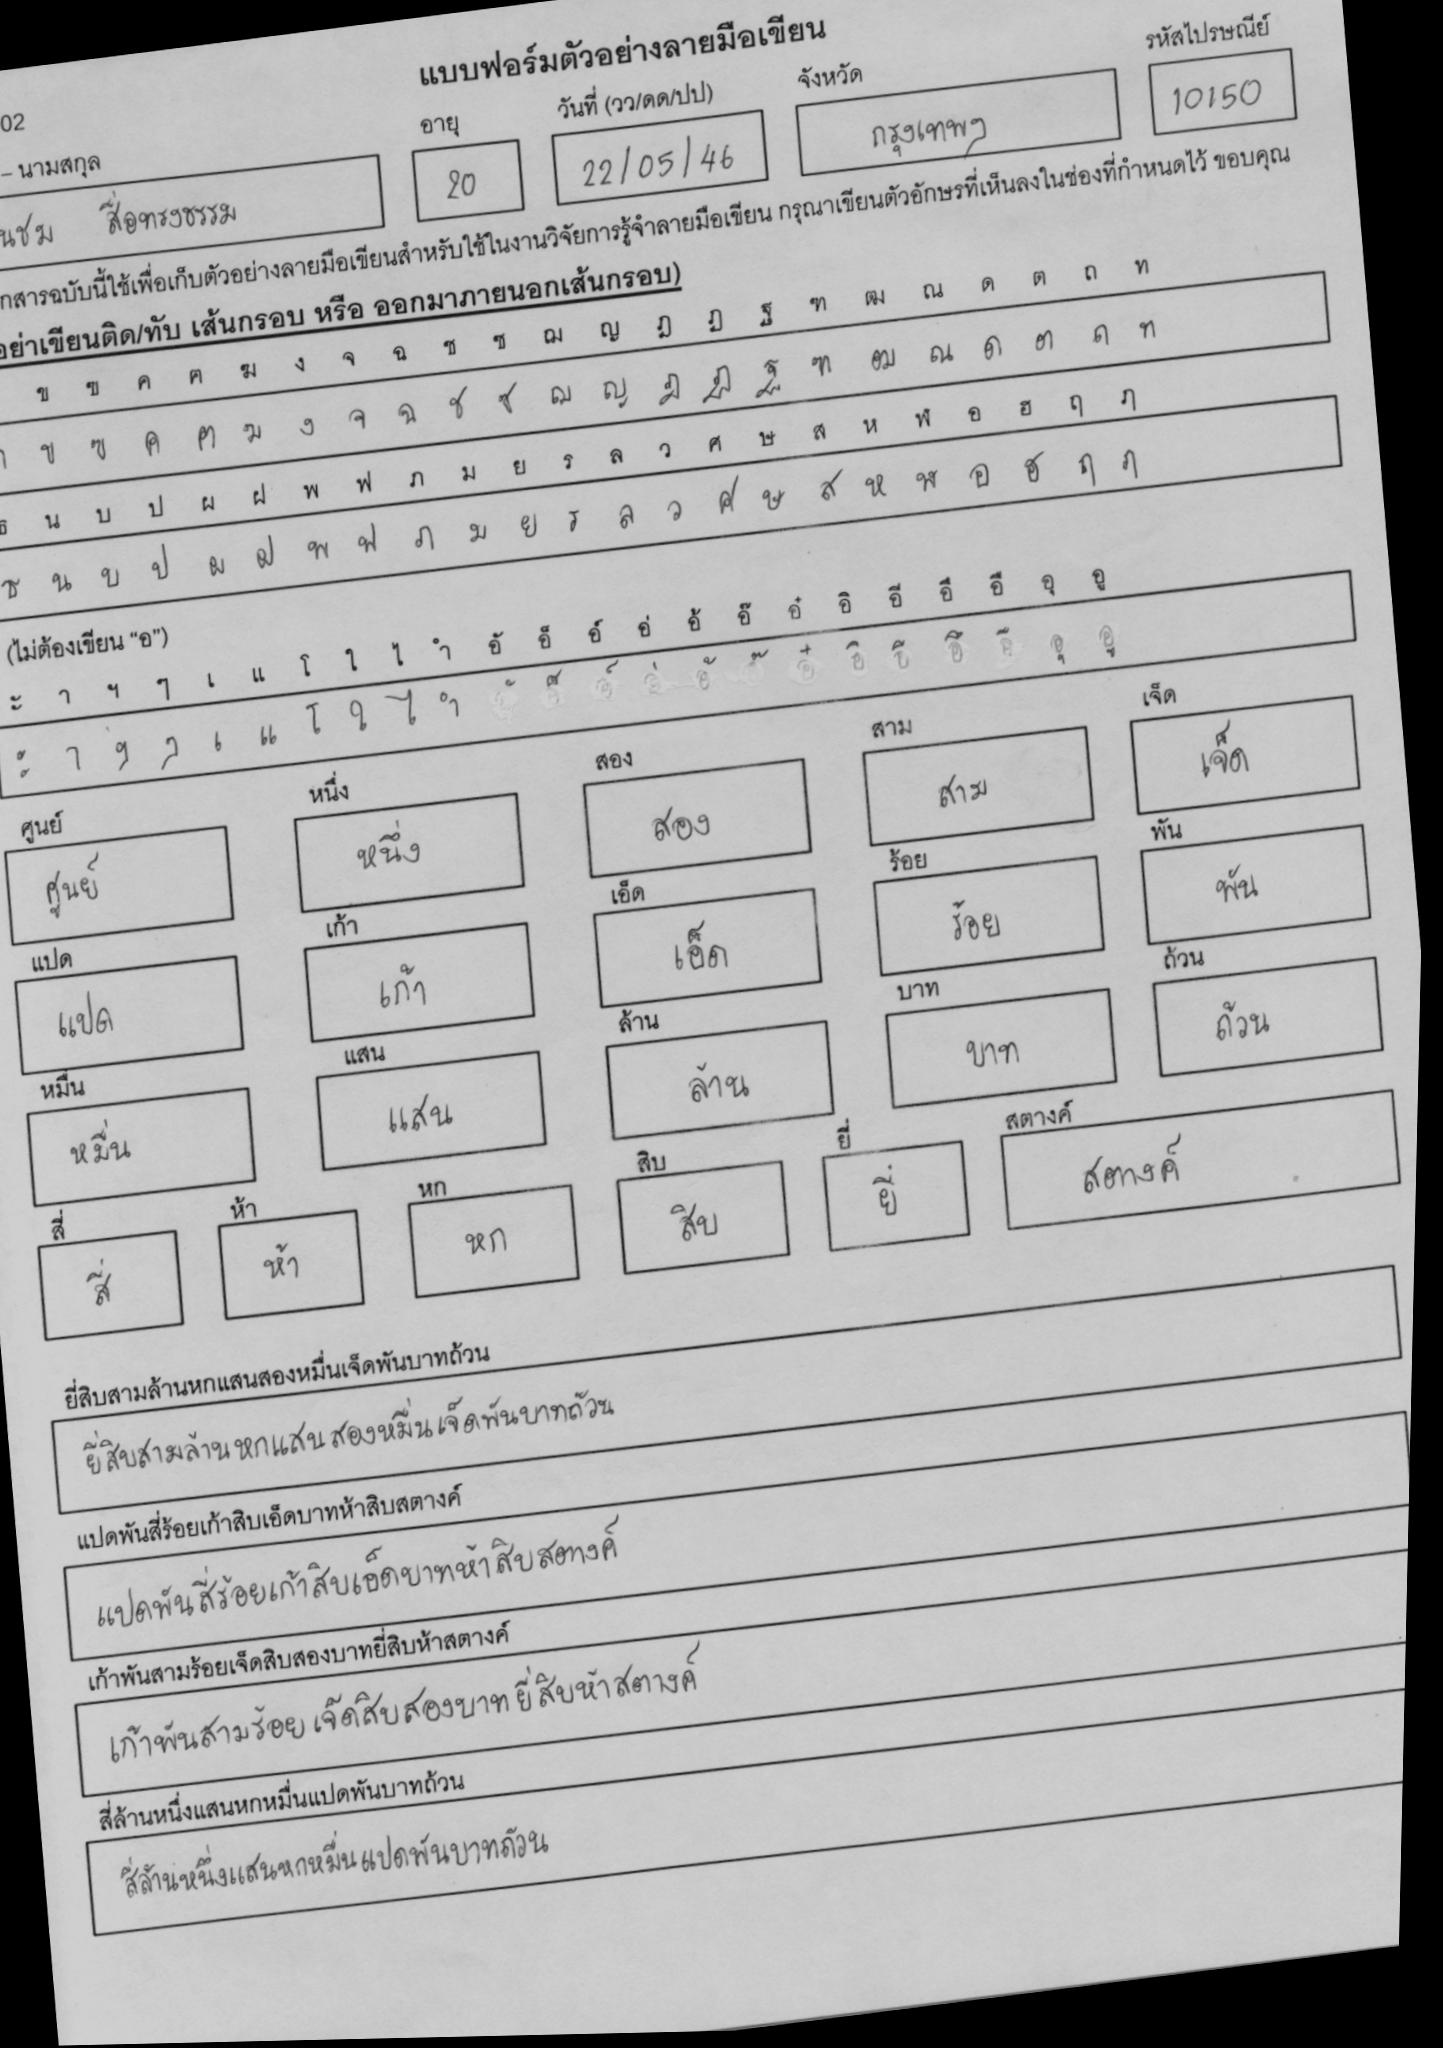 แบบฟอร์มตัวอย่างลายมือเขียน
02
– นามสกุล อายุ วันที่ (วว/ดด/ปป) จังหวัด รหัสไปรษณีย์
สื่อทรงธรรม 20 22/05/46 กรุงเทพฯ 10150
กสารฉบับนี้ใช้เพื่อเก็บตัวอย่างลายมือเขียนสำหรับใช้ในงานวิจัยการรู้จำลายมือเขียน กรุณาเขียนตัวอักษรที่เห็นลงในช่องที่กำหนดไว้ ขอบคุณ
อย่าเขียนติด/ทับ เส้นกรอบ หรือ ออกมาภายนอกเส้นกรอบ)
ข ฃ ค ฅ ฆ ง จ ฉ ช ซ ฌ ญ ฎ ฏ ฐ ฑ ฒ ณ ด ต ถ ท
ก ข ฃ ค ฅ ฆ ง จ ฉ ช ซ ฌ ญ ฎ ฏ ฐ ฑ ฒ ณ ด ต ถ ท
ธ น บ ป ผ ฝ พ ฟ ภ ม ย ร ล ว ศ ษ ส ห ฬ อ ฮ ฤ ฦ
ธ น บ ป ผ ฝ พ ฟ ภ ม ย ร ล ว ศ ษ ส ห ฬ อ ฮ ฤ ฦ
(ไม่ต้องเขียน “อ”)
ะ า ฯ ๆ เ แ โ ใ ไ ำ อั อ็ อ์ อ่ อ้ อ๊ อ๋ อิ อี อึ อื อุ อู
ะ า ฯ ๆ เ แ โ ใ ไ ำ
ศูนย์ หนึ่ง สอง สาม เจ็ด
ศูนย์ หนึ่ง สอง สาม เจ็ด
แปด เก้า เอ็ด ร้อย พัน
แปด เก้า เอ็ด ร้อย พัน
หมื่น แสน ล้าน บาท ถ้วน
หมื่น แสน ล้าน บาท ถ้วน
สี่ ห้า หก สิบ ยี่ สตางค์
สี่ ห้า หก สิบ ยี่ สตางค์
ยี่สิบสามล้านหกแสนสองหมื่นเจ็ดพันบาทถ้วน
ยี่สิบสามล้านหกแสนสองหมื่นเจ็ดพันบาทถ้วน
แปดพันสี่ร้อยเก้าสิบเอ็ดบาทห้าสิบสตางค์
แปดพันสี่ร้อยเก้าสิบเอ็ดบาทห้าสิบสตางค์
เก้าพันสามร้อยเจ็ดสิบสองบาทยี่สิบห้าสตางค์
เก้าพันสามร้อยเจ็ดสิบสองบาทยี่สิบห้าสตางค์
สี่ล้านหนึ่งแสนหกหมื่นแปดพันบาทถ้วน
สี่ล้านหนึ่งแสนหกหมื่นแปดพันบาทถ้วน